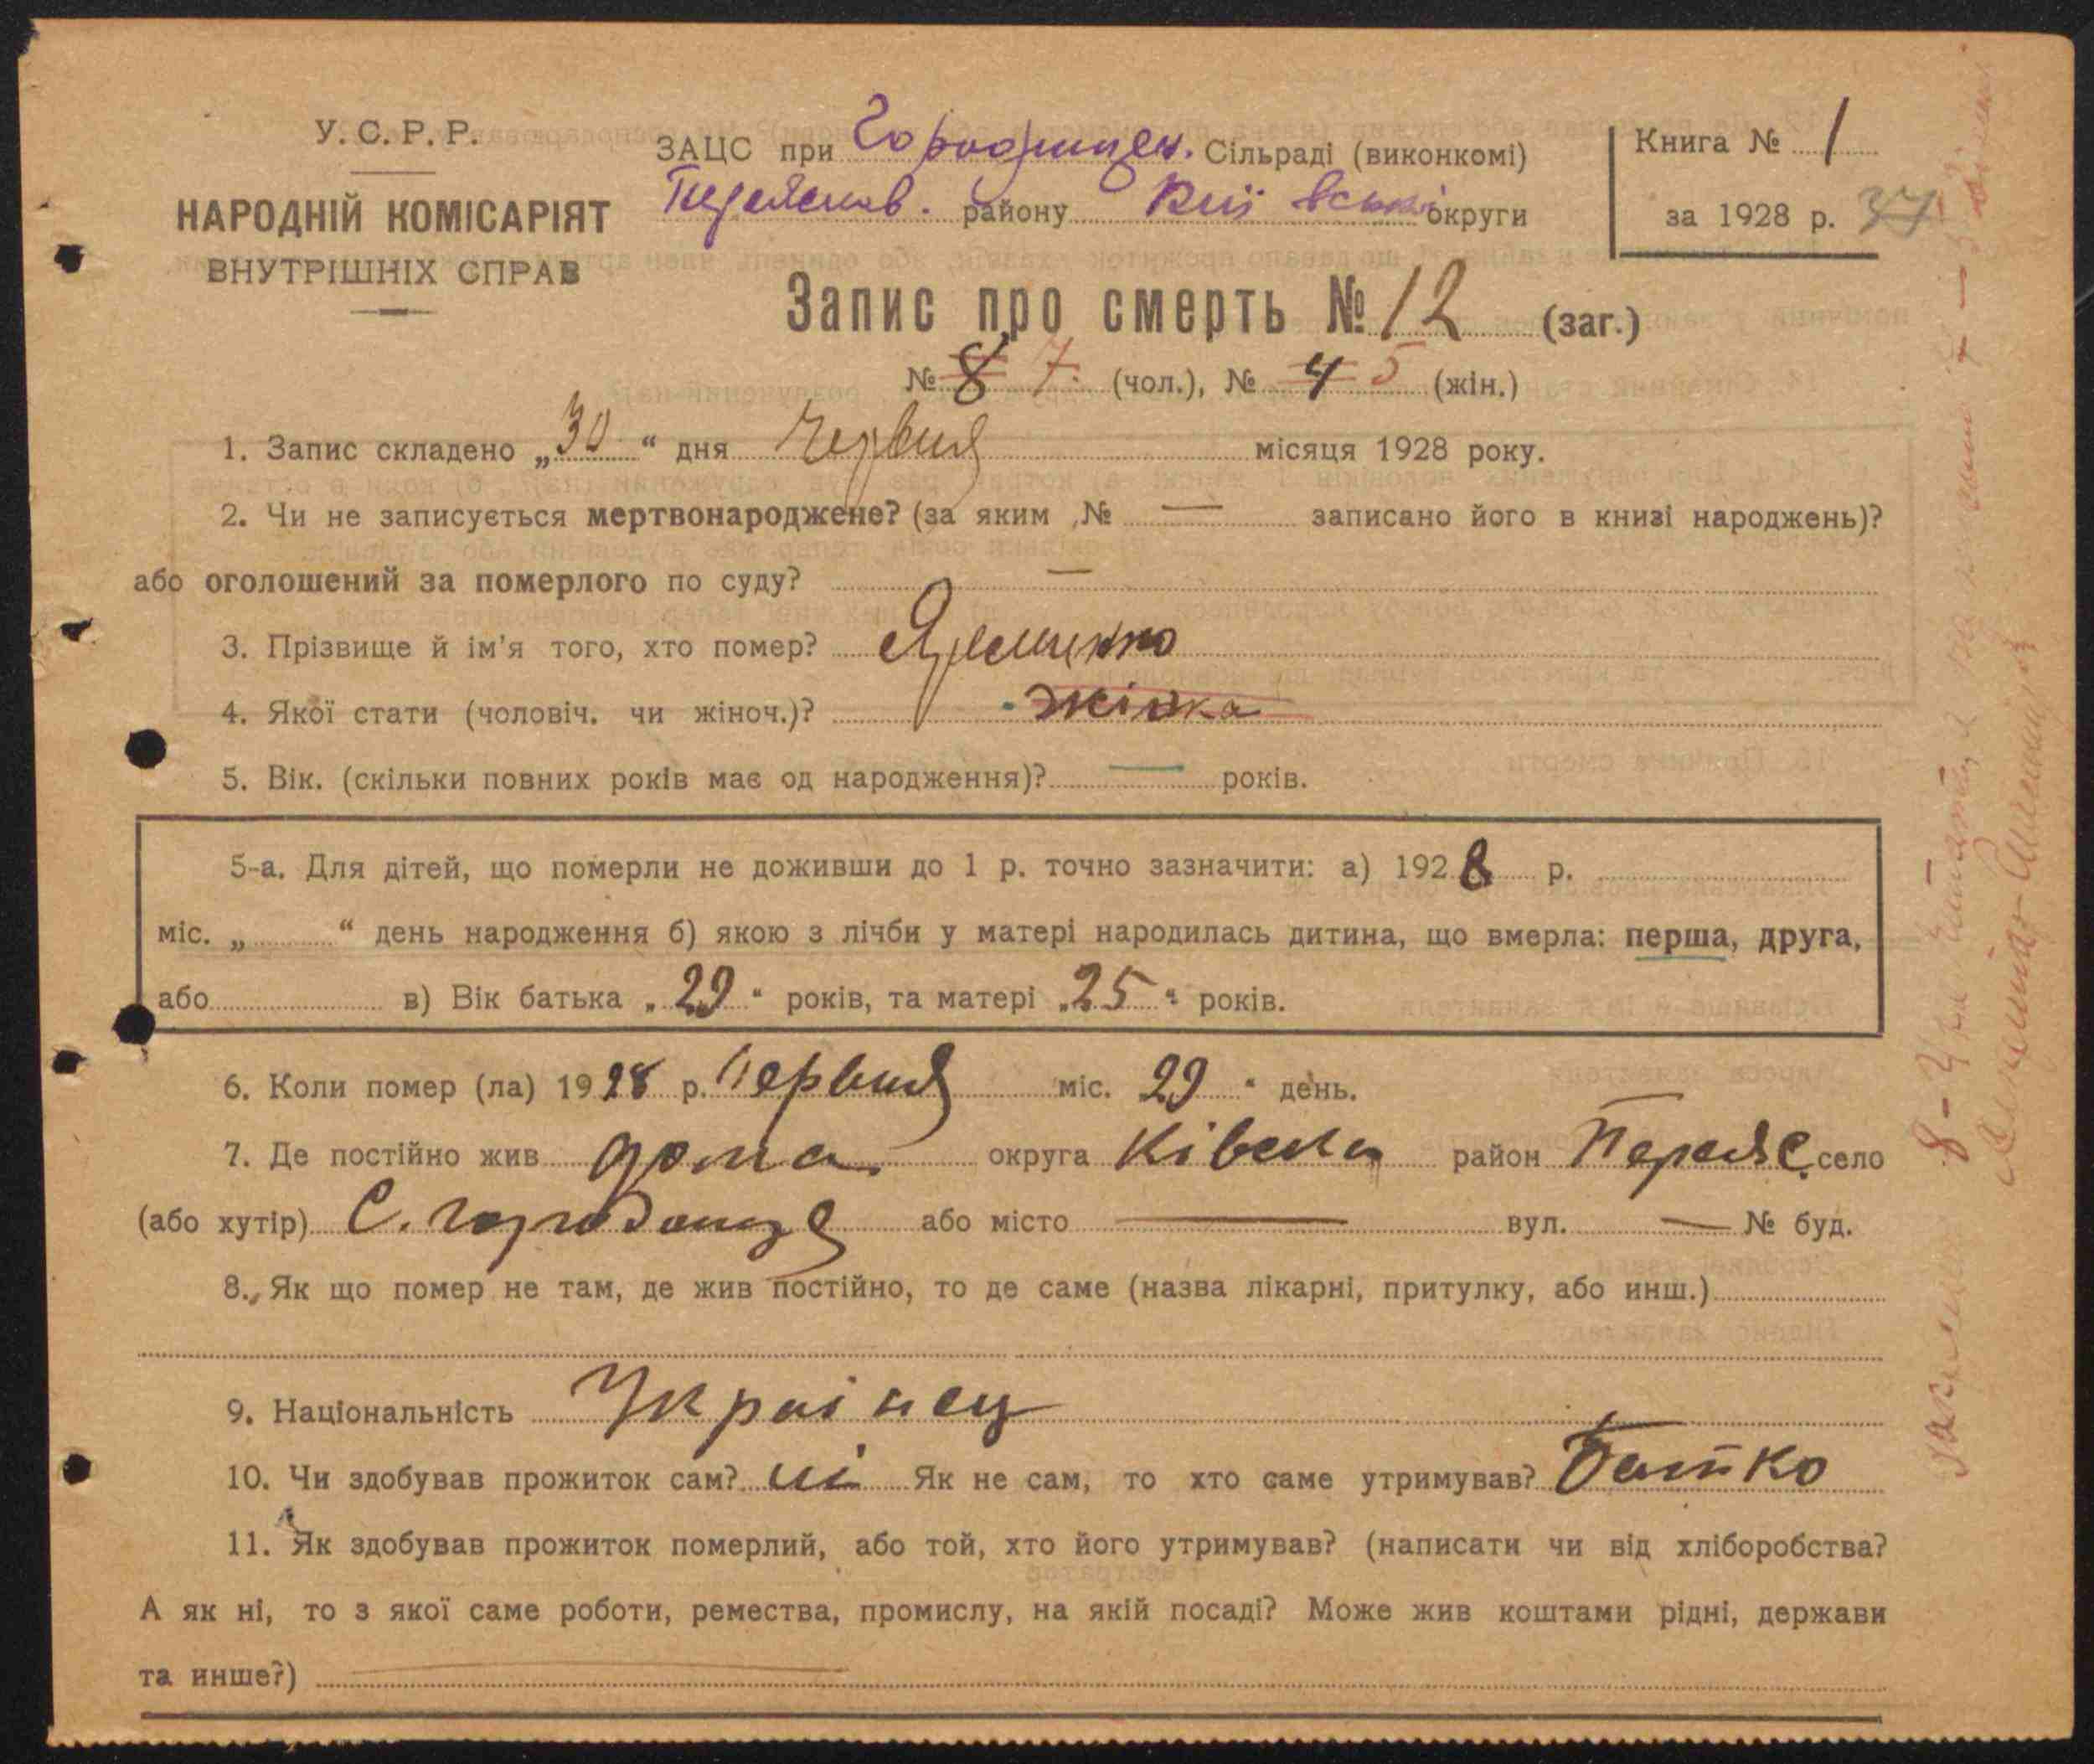 У. С. Р. Р.
НАРОДНІЙ КОМІСАРІЯТ
ВНУТРІШНІХ СПРАВ
ЗАЦС при Городищен. Сільраді (виконкомі)
Переяслав. району Київської округи
Книга № 1
за 1928 р. 37
Запис про смерть № 12 (заг.)
№ 8 7. (чол.), № 4 5 (жін.)
1. Запис складено „30“ дня Червня місяця 1928 року.
2. Чи не записується мертвонароджене? (за яким № — записано його в книзі народжень)?
або оголошений за померлого по суду? —
3. Прізвище й ім'я того, хто помер?
4. Якої стати (чоловіч. чи жіноч.)? жінка
5. Вік. (скільки повних років має од народження)? — років.
5-а. Для дітей, що померли не доживши до 1 р. точно зазначити: а) 1928 р.
міс. „ “ день народження б) якою з лічби у матері народилась дитина, що вмерла: перша, друга,
або в) Вік батька „29“ років, та матері „25“ років.
6. Коли помер (ла) 1928 р. Червня міс. 29 “ день.
7. Де постійно жив дома. округа Ківська район Переяс. село
(або хутір) С. Городище або місто — вул. — № буд.
8. Як що помер не там, де жив постійно, то де саме (назва лікарні, притулку, або инш.)
9. Національність Украінец
10. Чи здобував прожиток сам? ні Як не сам, то хто саме утримував? Батко
11. Як здобував прожиток померлий, або той, хто його утримував? (написати чи від хліборобства?
А як ні, то з якої саме роботи, ремества, промислу, на якій посаді? Може жив коштами рідні, держави
та инше?)